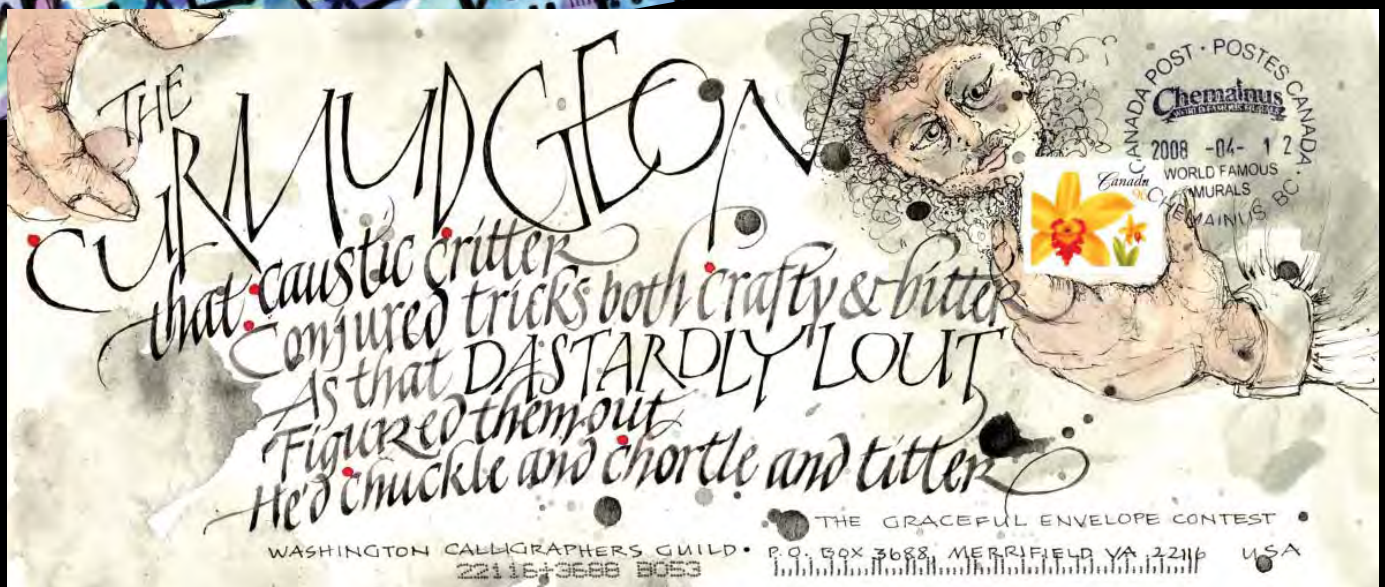 THE
CURMUDGEON
that caustic critter
Conjured tricks both crafty & bitter
As that DASTARDLY LOUT
Figured them out
He'd chuckle and chortle and titter
CANADA POST · POSTES CANADA
Chemainus
2008 -04- 12
WORLD FAMOUS
MURALS
CHEMAINUS BC
Canada
96
THE GRACEFUL ENVELOPE CONTEST
WASHINGTON CALLIGRAPHERS GUILD • P.O. BOX 3688, MERRIFIELD VA 22116 USA
22116+3688 B053